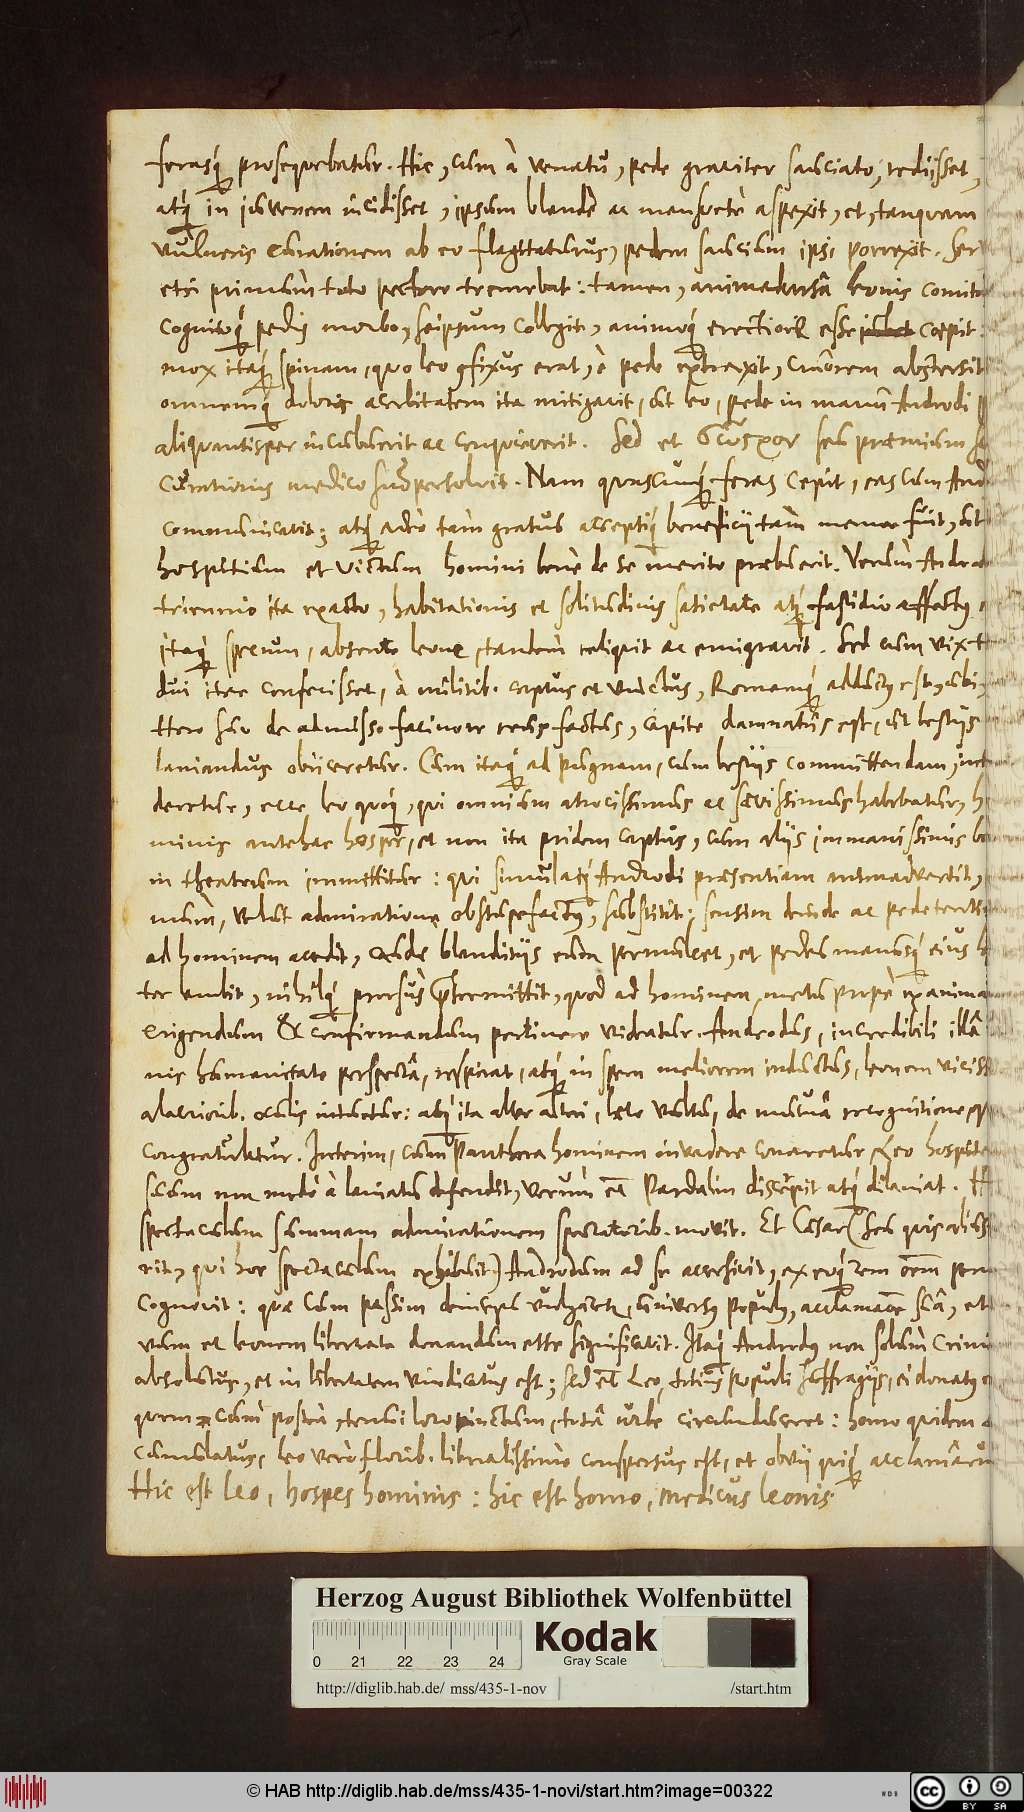 ferasq́ prosequebatur. Hic, cum à venatu, pede graviter sauciato, rediisset,
atq́ in juvenem incidisset, ipsum blandè ac mansuetè aspexit, et, tanquam
vulneris curationem ab eo flagitaturus, pedem saucium ipsi porrexit.
etsi primùm toto pectore tremebat: tamen, animadversâ leonis
cognitoq́ pedis morbo, seipsum collegit, animoq́ erectiori esse coepit:
mox itaq́ spinam, quo leo cõfixus erat, è pede extraxit, cruorem abstersit
omnemq́ doloris acerbitatem ita mitigavit, ut leo, pede in manu Androdi
aliquantisper incubuerit ac conquieverit. Sed et seu præmium
Curationis medico suo persolvit. Nam quascunq́ feras cepit, eas cum
communicavit; atq́ adeò tam gratus acceptiq́ beneficij tam memor fuit, ut
hospitium et victum homini bene de se merito præbuerit. Verùm
triennio ita exacto, habitationis et solitudinis satietate atq́ fastidio affectus,
itaq́ specum, absente leone, tandem reliquit ac emigravit. Sed cum vix
dui iter confecisset, à militib. captus et vinctus, Romamq́ adductus est, ubi,
Hero suo de admisso facinore reus factus, capite damnatus est, ut bestijs
laniandus obijceretur. Cùm itaq́ ad pugnam, cum bestijs committendam,
deretur, ecce leo quoq́, qui omnium atrocissimus ac sævissimus habebatur,
minis antehac hospes, et non ita pridem captus, cum alijs immanissimis
in theatrum immittitur: qui simulatq́ Androdi præsentiam animadvertit,
mùm, velut admiratione obstupefactus, substitit; sensim deinde ac pedetentim
ad hominem accedit, caudæ blanditijs eum permulcet, et pedes manusq́ ejus
ter lambit, nihilq́ prorsus prætermittit, quod ad hominem, metu propè
erigendum & confirmandum pertinere videatur. Androdus, incredibili illâ
nis humanitate perspectâ, respirat, atq́ in spem meliorem inductus, leonem
alacriorib. oculis intuetur: atq́ ita alter alteri, læto vultu, de mutuâ recognitione,
congratulatur. Interim, cùm Panthera hominem invadere conaretur Leo
suum non modò à laniatu defendit, verùm et Pardalin discerpit atq́ dilaniat.
spectaculum summam admirationem spectatorib. movit. Et Cæsar (seu quis alius
rit, qui hoc spectaculum exhibuit) Androdum ad se accersivit, ex eoq́ rem oẽm
cognovit: quæ cùm passim deinceps vulgaretur, universus Populus, acclamatione suâ, et
vum et leonem libertate donandum esse significavit. Itaq́ Androdus non solùm
absolutus, et in libertatem vindicatus est; sed et Leo, totius Populi suffragijs, ei donatus
quem cùm posteà, tenui loro vinctum, totâ urbe circunduceret: homo quidem
cumulatus, leo verò florib. liberalissimè conspersus est, et obvij quiq́
Hic est leo, hospes hominis: hic est homo, medicus leonis
Herzog August Bibliothek Wolfenbüttel
0 21 22 23 24
Kodak
Gray Scale
http://diglib.hab.de/ mss/435-1-nov /start.htm
© HAB http://diglib.hab.de/mss/435-1-novi/start.htm?image=00322
WDB
cc BY SA